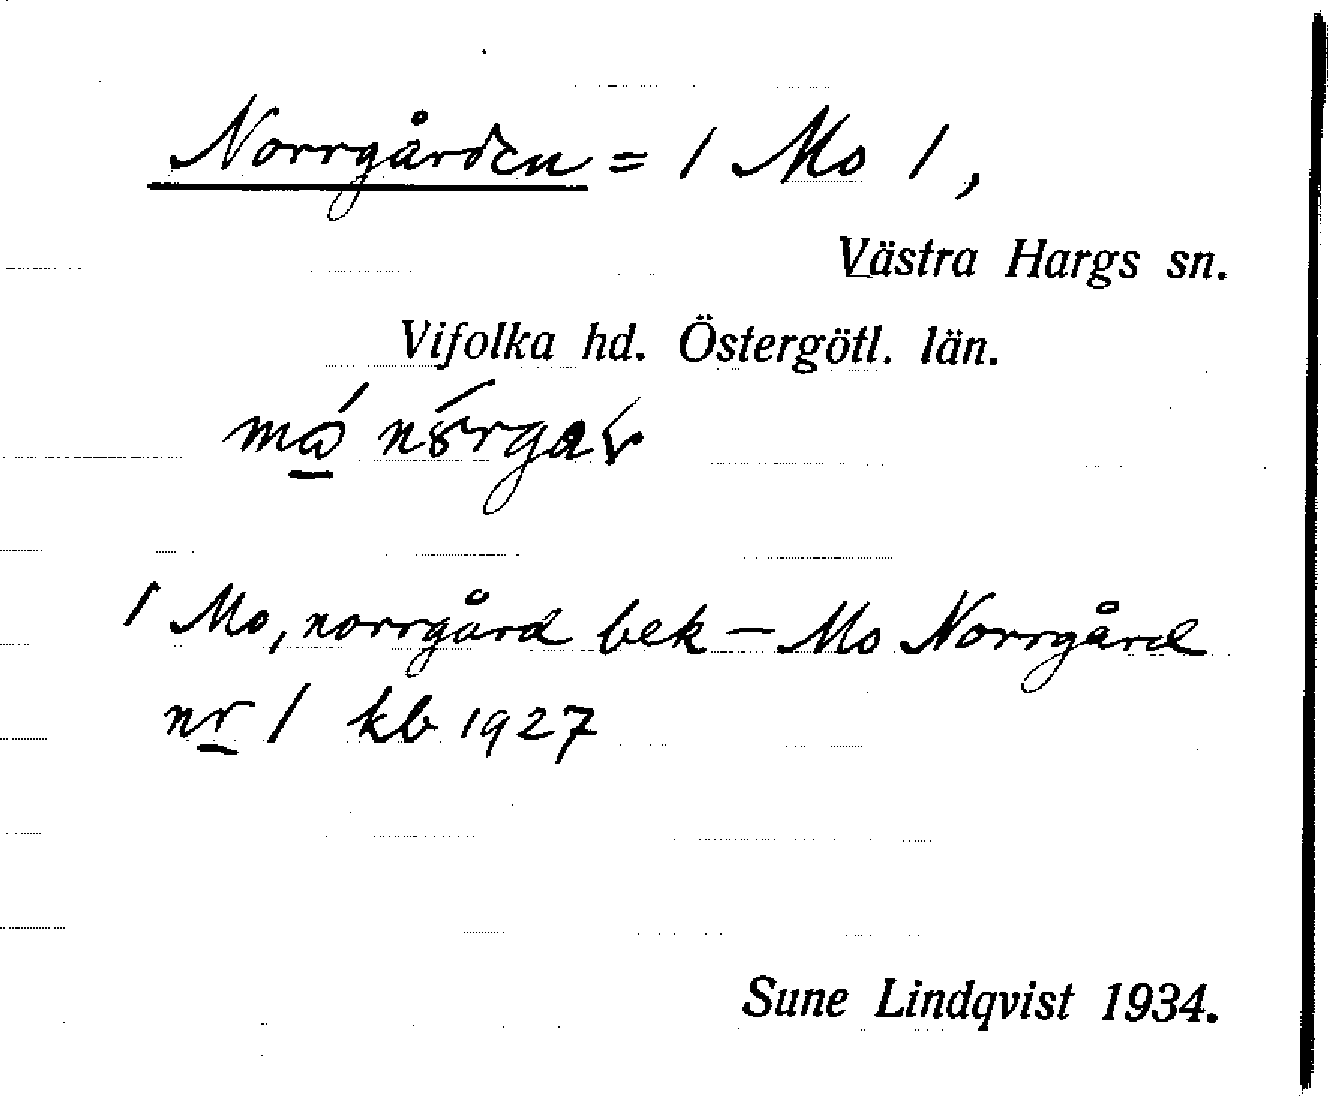 Norrgården = 1 Mo 1,
Västra Hargs sn.
Vifolka hd. Östergötl. län.
1 Mo, norrgård bek – Mo Norrgård
nr 1 kb 1927
Sune Lindqvist 1934.